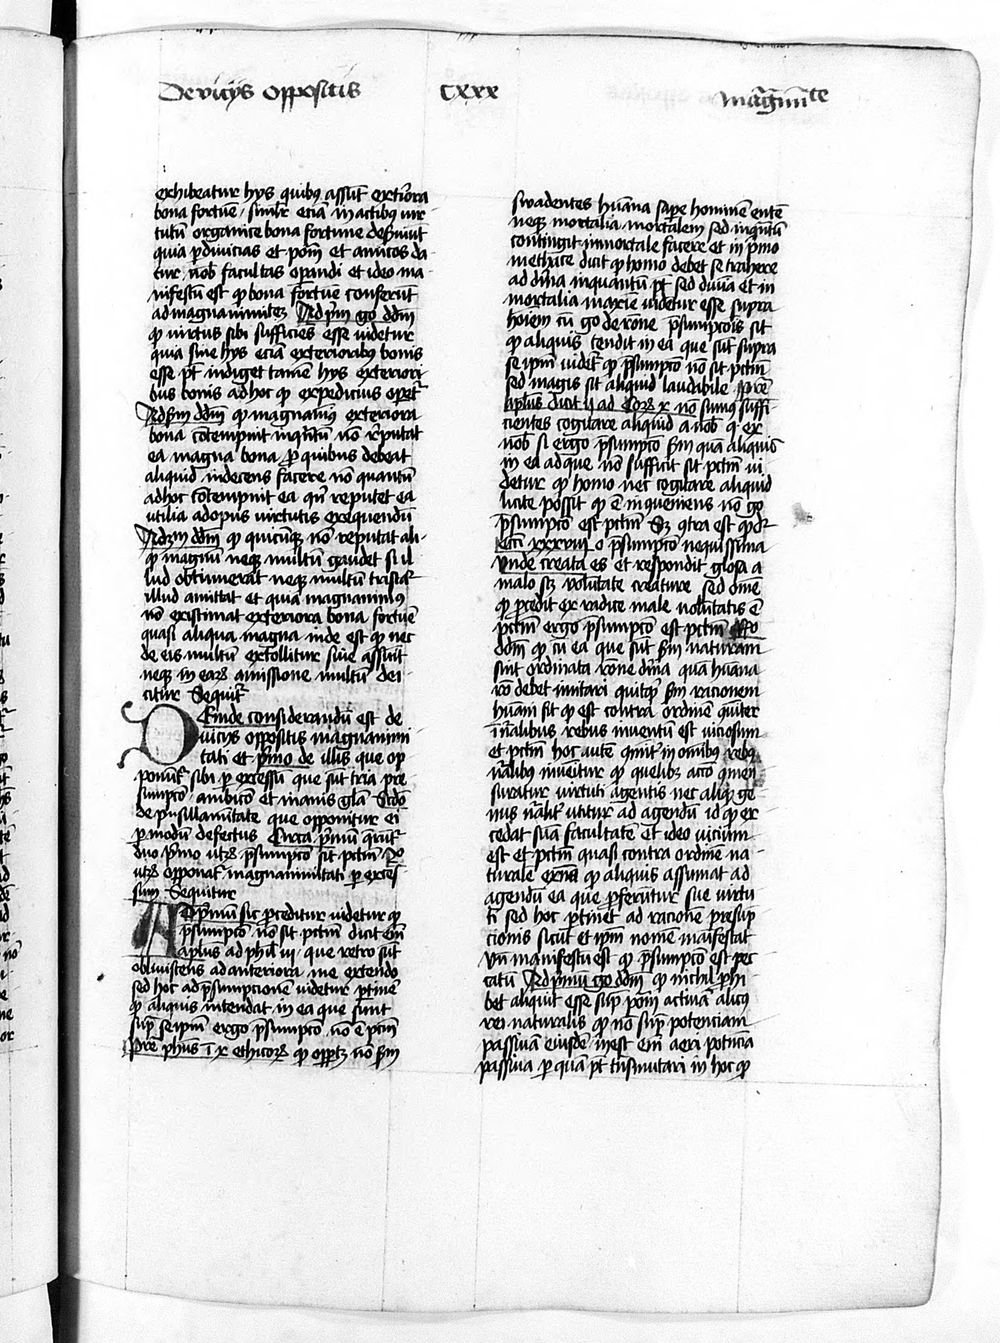 De vicijs oppositis CXXX magnanimite
exhibeatur hys quibus assunt exteriora
bona fortune / similiter etiam in actibus vir
tutum organice bona fortune deserviunt
quia per divicias et potentiam et amicos da
tur nobis facultas operandi et ideo ma
nifestum est quod bona fortune conferunt
ad magnanimitatem Ad primum ergo dicendum
quod virtus sibi sufficiens esse videtur
quia sine hys etiam exterioribus bonis
esse potest indiget tamen hys exteriori
bus bonis ad hoc quod expedicius operetur
Ad secundum dicendum quod magnanimus exteriora
bona contempnit inquantum non reputat
ea magna bona pro quibus debeat
aliquid indecens facere non quantum
ad hoc contempnit ea quin reputet ea
utilia ad opus virtutis exequendum
Ad tercium dicendum quod quicumque non reputat ali
quid magnum neque multum gaudet si il
lud obtinuerat neque multum tristatur
illud amittat et quia magnanimus
non existimat exteriora bona fortune
quasi aliqua magna inde est quod nec
de eis multum extollitur sive assint
neque in earum amissione multum dei
citur Sequitur
Deinde considerandum est de
vicijs oppositis magnanimi
tati et primo de illis que op
ponuntur sibi per excessum que sunt tria pre
sumpcio / ambicio et inanis gloria Secundo
de pusillanimitate que opponitur ei
per modum defectus Circa primum queruntur
duo primo utrum presumpcio sit peccatum 2o
utrum opponatur magnanimitati per exces
sum Sequitur
Ad primum sic proceditur videtur quod
presumpcio non sit peccatum dicit enim
aplus ad phil iii que retro sunt
obliviscens ad anteriora me extendo
sed hoc ad presumptionem videtur pertinere
quod aliquis intendat in ea que sunt
supra se ipsum ergo presumpcio non est peccatum
Preterea phus in x ethicorum quod oportet non secundum
swadentes humana sapere hominem entem
neque mortalia mortalem sed inquantum
contingit immortale facere et in primo
methaice dicit quod homo debet se trahere
ad divina inquantum potest sed divina et in
mortalia maxime videntur esse supra
hominem cum ergo de racione presumpcionis sit
quod aliquis tendit in ea que sunt supra
se ipsum videtur quod presumpcio non sit peccatum
sed magis sit aliquid laudabile Preterea
aplus dicit ii ad Corum x non sumus suffi
cientes cogitare aliquid a nobis quasi ex
nobis si ergo presumpcio secundum quam aliquis
in ea ad que non sufficit sit peccatum vi
detur quod homo nec cogitare aliquid
licite possit quod est inconveniens non ergo
presumpcio est peccatum Sed contra est quod dicitur
ecci xxxvii o presumpcio nequissima
unde creata es et respondit glosa a
malo scilicet voluntate creature sed omne
quod procedit ex radice male voluntatis est
peccatum ergo presumpcio est peccatum Respondeo
dicendum quod cum ea que sunt secundum naturam
sint ordinata racione divina quam humana
racio debet imitari quitquid secundum racionem
humanam sit quod est contra ordinem communiter
in naturalibus rebus inventum est viciosum
et peccatum hoc autem communiter in omnibus rebus
naturalibus invenitur quod quelibet actio commen
suratur virtuti agentis nec aliquid ge
nus naturaliter utitur ad agendum id quod ex
cedat suam facultatem et ideo vicium
est et peccatum quasi contra ordinem na
turale existens quod aliquis assumat ad
agendum ea que preferuntur sue virtu
ti sed hoc pertinet ad racionem presump
cionis sicut et ipsum nomen manifestat
unde manifestum est quod presumpcio est pec
catum Ad primum ergo dicendum quod nichil prohi
bet aliquid esse supra potenciam activam alicuius
rei naturalis quod non supra potenciam
passivam eiusdem inest enim aeri potencia
passiva per quam potest transmutari in hoc quod